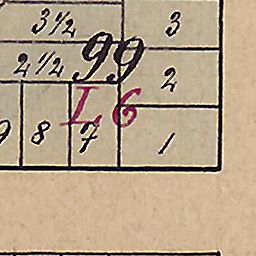 3½ 3
99
2½ 2
L 6
9 8 7 1